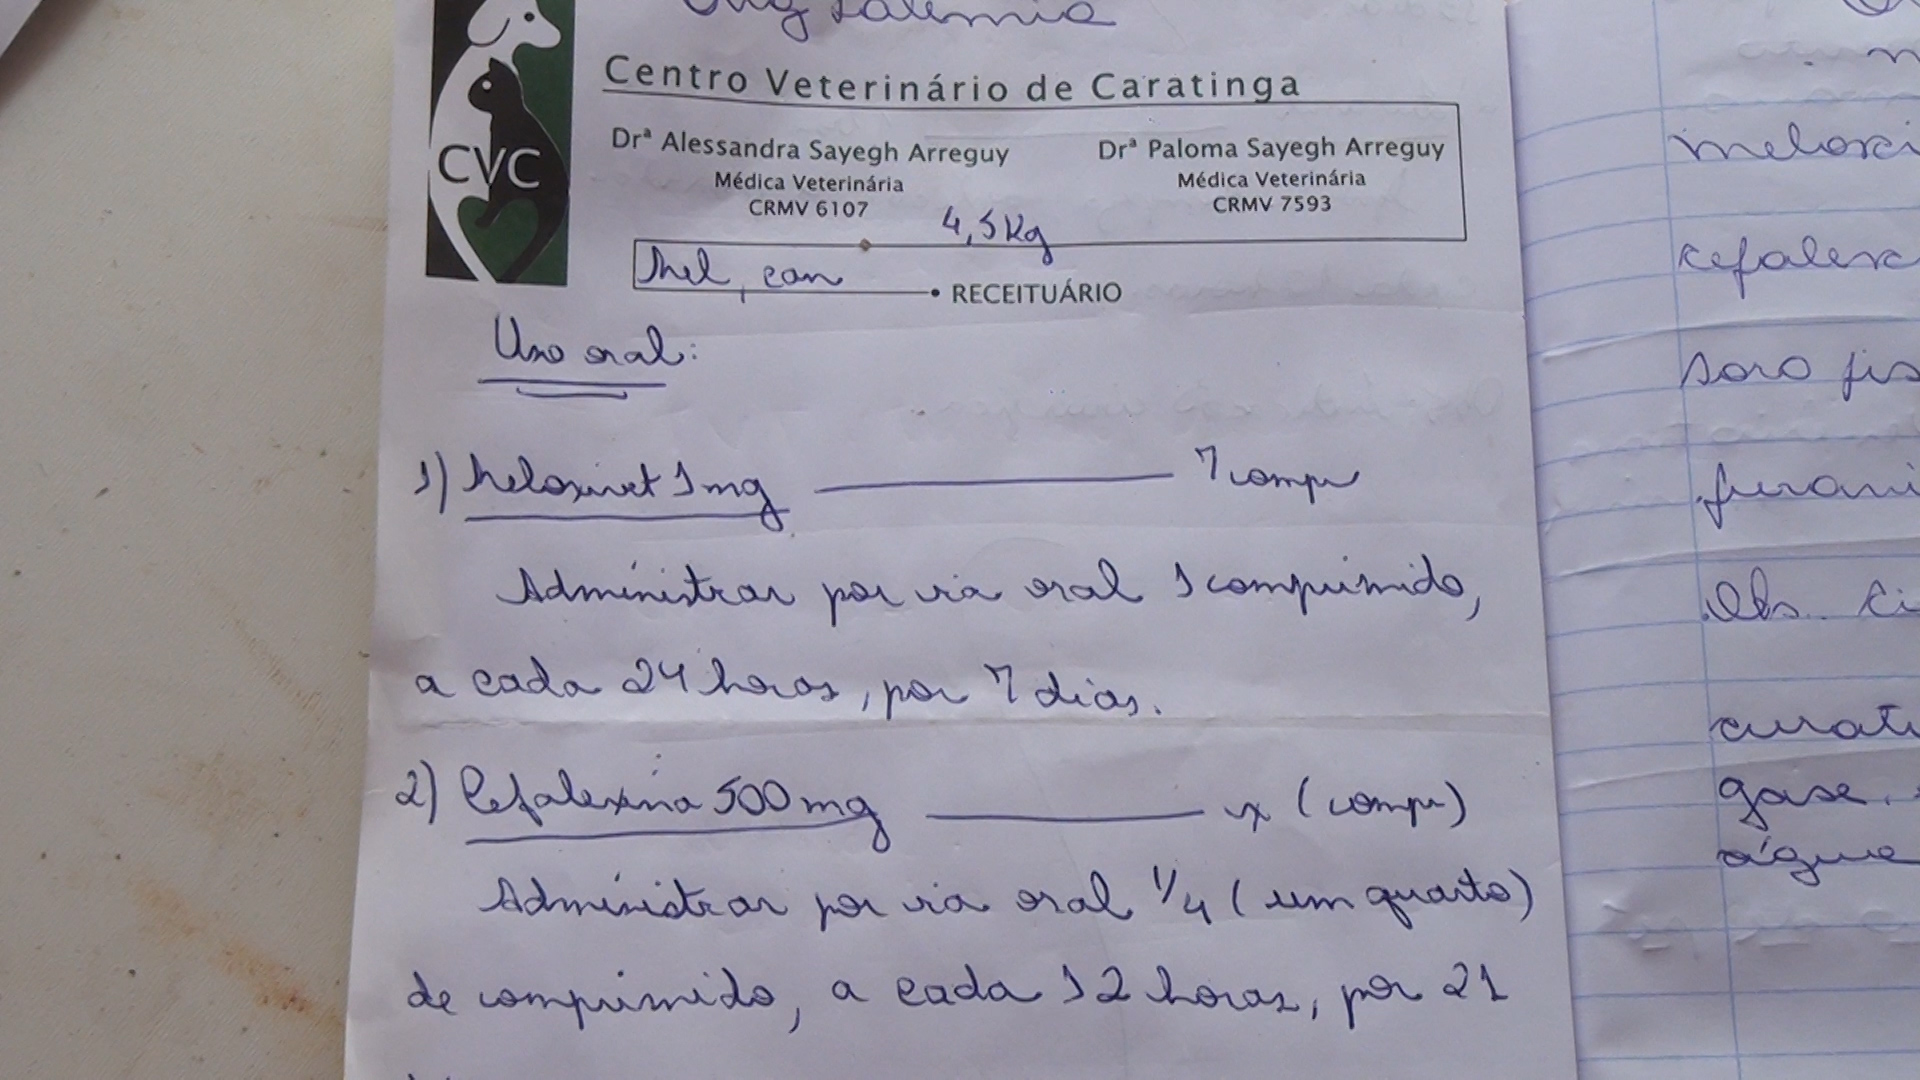 Centro Veterinário de Caratinga
CVC
Drª Alessandra Sayegh Arreguy
Médica Veterinária
CRMV 6107
Drª Paloma Sayegh Arreguy
Médica Veterinária
CRMV 7593
4,5 Kg
Mel, can
• RECEITUÁRIO
Uso oral:
1) Meloxivet 1mg 7 comp
Administrar por via oral 1 comprimido,
a cada 24 horas, por 7 dias.
2) Cefalexina 500mg (comp)
Administrar por via oral 1/4 (um quarto)
de comprimido, a cada 12 horas, por 21
meloxi
cefalex
soro fis
furani
Obs.
curati
gase.
água